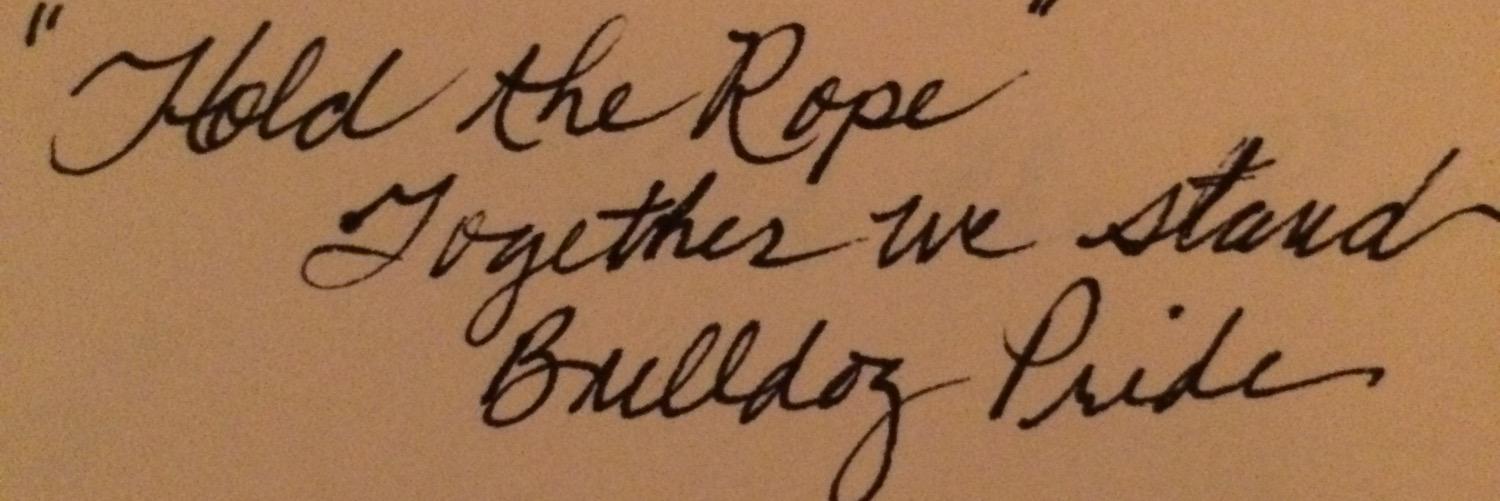 "Hold the Rope"
Together we stand
Bulldog Pride